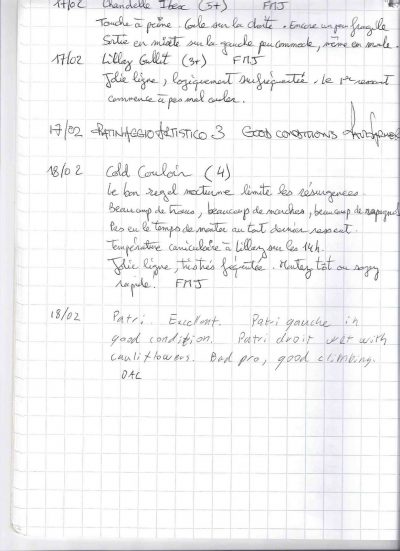 17/02 Chandelle Ibex (5+) FMJ
Touche à peine. Gale sur la droite. Encore un peu fragile
Sortie en mixte sur la gauche peu commode, même en mule.
17/02 Lillaz Gullit (3+) FMJ
Jolie ligne, logiquement surfréquentée. Le 1er ressaut
commence à pas mal couler.
17/02 PATINAGGIO ARTISTICO 3 GOOD CONDITIONS
18/02 Cold Couloir (4)
Le bon regel nocturne limite les résurgences.
Beaucoup de trous, beaucoup de marches, beaucoup de
Pas eu le temps de monter au tout dernier ressaut.
Température caniculaire à Lillaz sur les 14h.
Jolie ligne, très très fréquentée. Montez tôt ou soyez
rapide. FMJ
18/02 Patri. Excellent. Patri gauche in
good condition. Patri droit wet with
cauliflowers. Bad pro, good climbing.
OAL